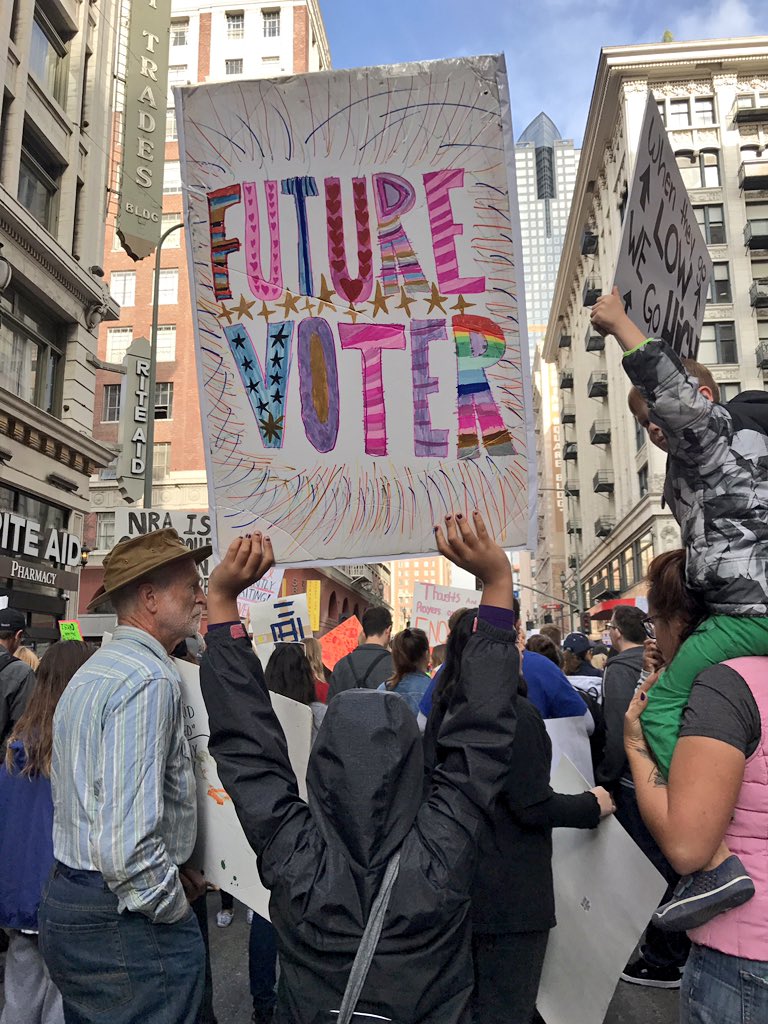 TRADES
BLDG
RITE AID
FUTURE
VOTER
When they go
LOW
WE
Go HIGH
NRA IS
RITE AID
PHARMACY
THOUGHTS AND
PRAYERS